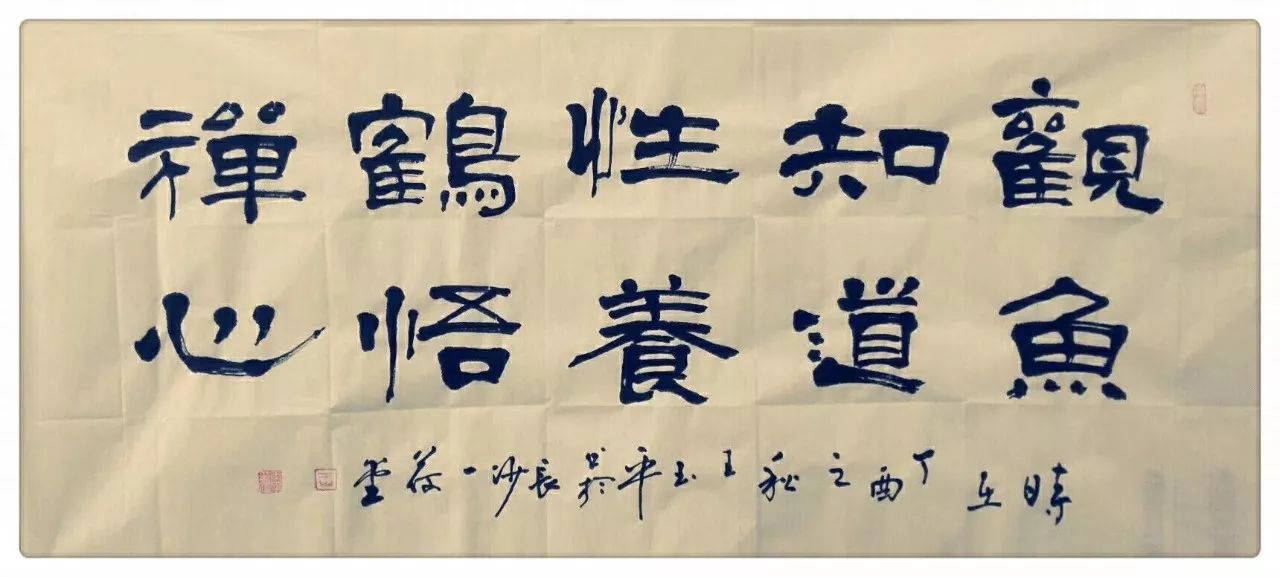 觀魚
知道
性養
鶴悟
禪心
時在丁酉之秋王玉平書於長沙一堂